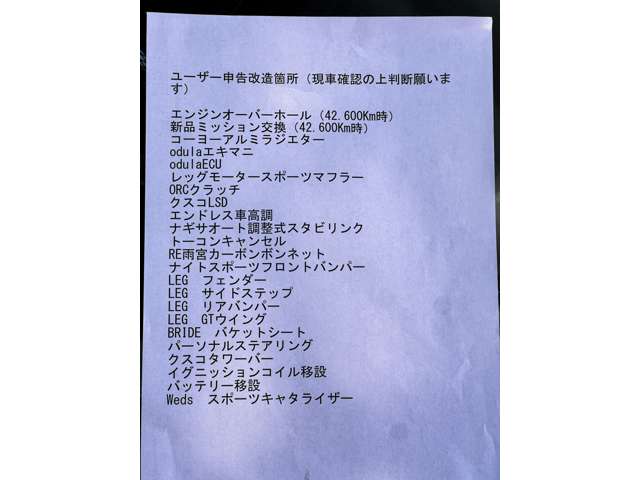 ユーザー申告改造箇所（現車確認の上判断願いま
す）
エンジンオーバーホール（42.600Km時）
新品ミッション交換（42.600Km時）
コーヨーアルミラジエター
odulaエキマニ
odulaECU
レッグモータースポーツマフラー
ORCクラッチ
クスコLSD
エンドレス車高調
ナギサオート調整式スタビリンク
トーコンキャンセル
RE雨宮カーボンボンネット
ナイトスポーツフロントバンパー
LEG　フェンダー
LEG　サイドステップ
LEG　リアバンパー
LEG　GTウイング
BRIDE　バケットシート
パーソナルステアリング
クスコタワーバー
イグニッションコイル移設
バッテリー移設
Weds　スポーツキャタライザー